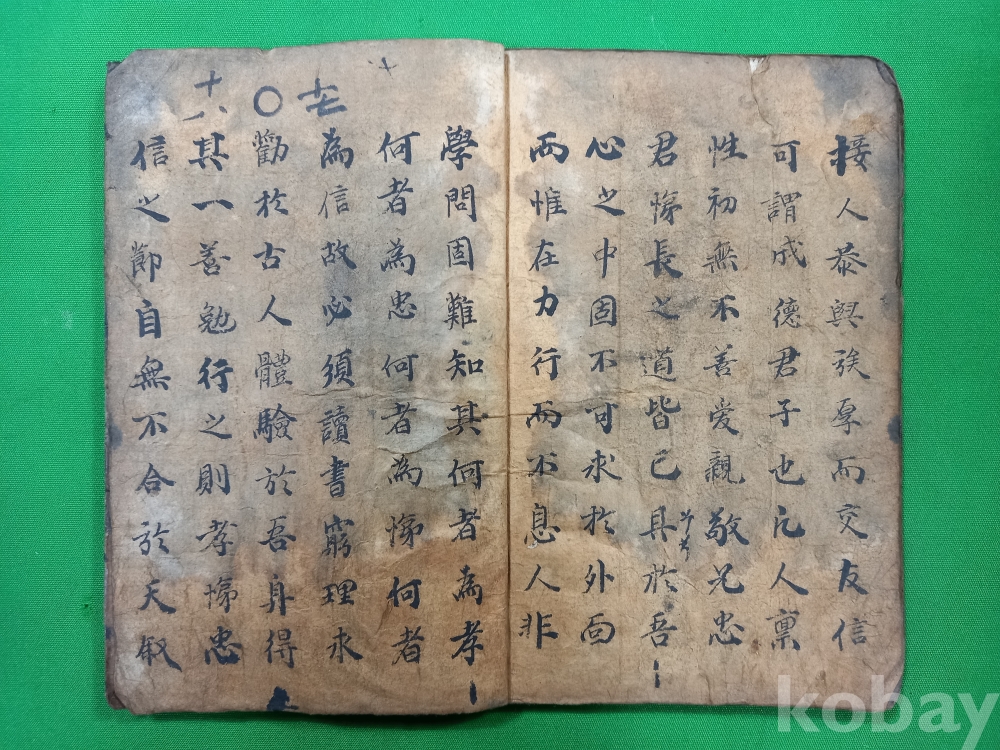 接人恭與族厚而交友信
可謂成德君子也凡人稟
性初無不善愛親敬兄忠
君悌長之道皆已具於吾
心之中固不可求於外面
而惟在力行而不息人非
學問固難知其何者為孝
何者為忠何者為悌何者
為信故必須讀書窮理求
勸於古人體驗於吾身得
其一善勉行之則孝悌忠
信之節自無不合於天叙
kobay